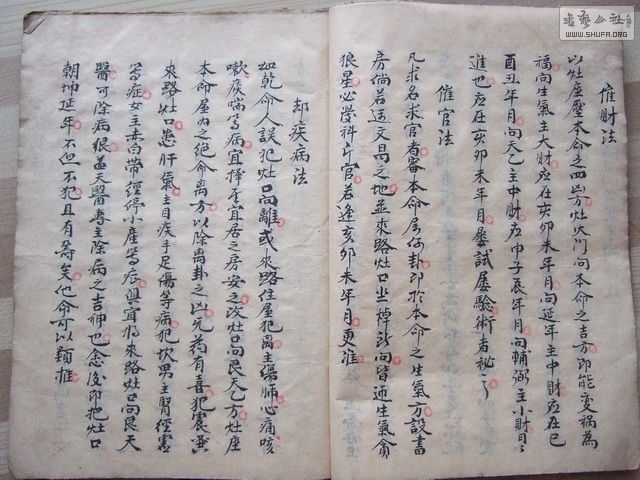 催財法
以灶座壓本命之四凶方灶火门向本命之吉方即能变祸為
福向生氣主大財应在亥卯未年月向延年主中財应在巳
酉丑年月向天乙主中財应申子辰年月向輔弼主小財日
進也应在亥卯未年月屡試屡驗術者祕之
催官法
凡求名求官者審本命属何卦即於本命之生氣方設書
房倘若送文昌之地並來路灶口坐所向皆迎生氣貪
狼星必登科斤官若逢亥卯未年月更准
却疾病法
如乾命人誤犯灶口向離或來路住屋犯离主傷肺心痛咳
嗽痰喘等病宜擇星宜居之房安之改灶口向艮天乙方灶座
本命屋内之绝命离方以除离卦之凶元药有喜犯震巽
來路灶口患肝氣主目疾手足傷等病犯坎男主腎經害
等症女主赤白帶經停小產等症俱宜将來路灶口向艮天
醫可除病根盖天醫專主除病之吉神也念後即把灶口
朝坤延年不但不犯且有夀矣他命可以類推
书艺公社
WWW.SHUFA.ORG